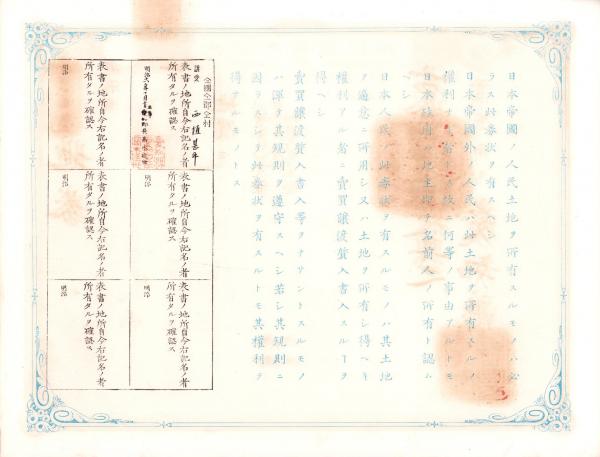 日本帝國ノ人民土地ヲ所有スルモノハ必
ラス此券狀ヲ有スヘシ
日本帝國外ノ人民ハ此土地ヲ所有スルノ
權利ナキ者トス故ニ何等ノ事由アルトモ
日本政府ハ地主即チ名前人ノ所有ト認ム
ヘシ
日本人民ノ此券狀ヲ有スルモノハ其土地
ヲ適意ニ所用シ又ハ土地ヲ所有シ得ヘキ
權利アル者ニ賣買讓渡質入書入スルヿヲ
得ヘシ
賣買讓渡質入書入等ヲナサントスルモノ
ハ渾テ其規則ヲ遵守スヘシ若シ其規則ニ
因ラスシテ此券狀ヲ有スルトモ其權利ヲ
得サルモノトス
仝國仝郡仝村
表書ノ地所自今右記名ノ者
所有タルヲ確認ス
明治
表書ノ地所自今右記名ノ者
所有タルヲ確認ス
明治
表書ノ地所自今右記名ノ者
所有タルヲ確認ス
明治
表書ノ地所自今右記名ノ者
所有タルヲ確認ス
明治
表書ノ地所自今右記名ノ者
所有タルヲ確認ス
明治
表書ノ地所自今右記名ノ者
所有タルヲ確認ス
明治